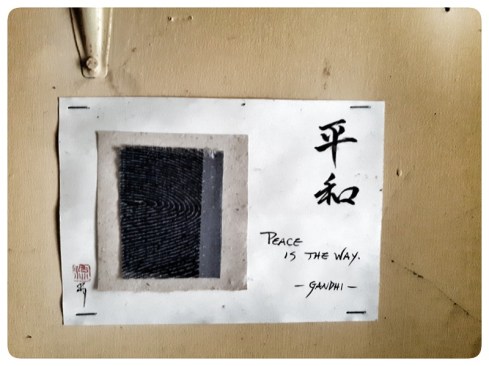 平
和
PEACE
IS THE WAY.
- GANDHI -